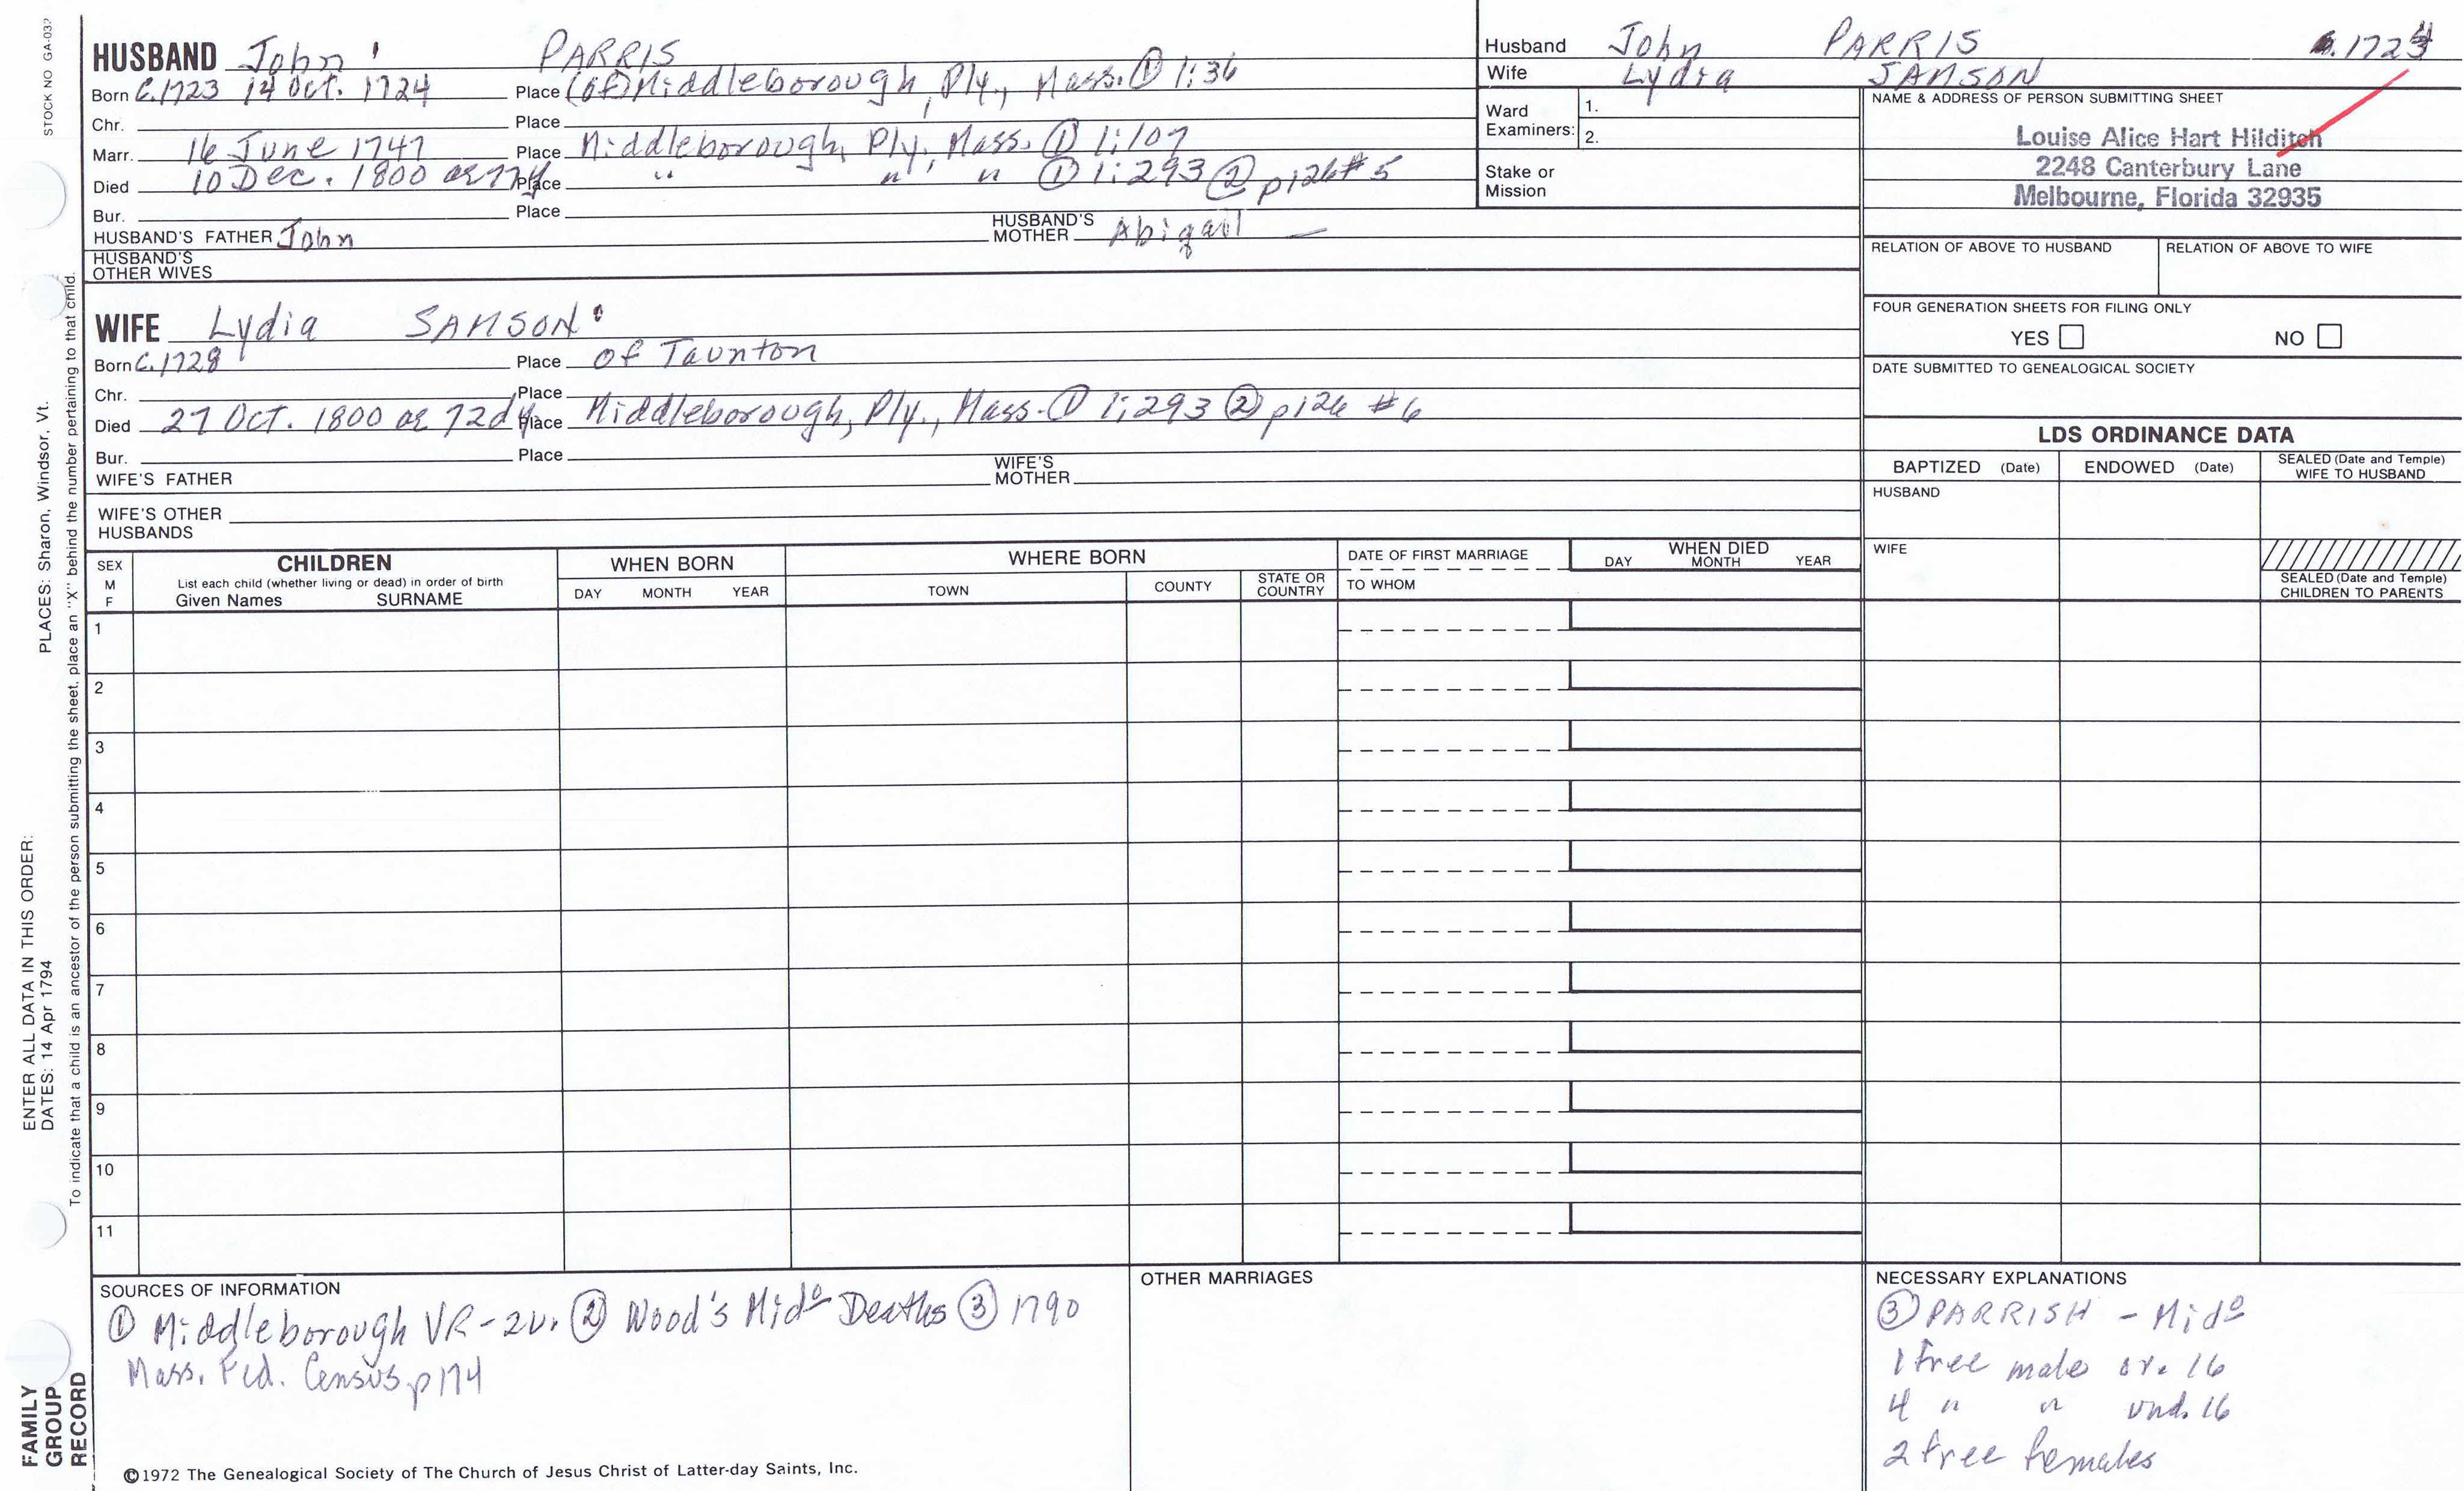 STOCK NO GA-032
HUSBAND John PARRIS
Born C.1723 14 Oct. 1724 Place (of) Middleborough, Ply., Mass. ① 1:36
Chr. Place
Marr. 16 June 1747 Place Middleborough, Ply., Mass. ① 1:107
Died 10 Dec. 1800 ae 77y Place " " " ① 1:293 ② p126 #5
Bur. Place
HUSBAND'S FATHER John HUSBAND'S MOTHER Abigail —
HUSBAND'S OTHER WIVES
WIFE Lydia SAMSON
Born C.1728 Place of Taunton
Chr. Place
Died 27 Oct. 1800 ae 72d y. Place Middleborough, Ply., Mass. ① 1:293 ② p126 #6
Bur. Place
WIFE'S FATHER WIFE'S MOTHER
WIFE'S OTHER HUSBANDS
Husband John PARRIS 1724
Wife Lydia SAMSON
Ward Examiners: 1.
2.
Stake or Mission
NAME & ADDRESS OF PERSON SUBMITTING SHEET
Louise Alice Hart Hilditch
2248 Canterbury Lane
Melbourne, Florida 32935
RELATION OF ABOVE TO HUSBAND RELATION OF ABOVE TO WIFE
FOUR GENERATION SHEETS FOR FILING ONLY
YES NO
DATE SUBMITTED TO GENEALOGICAL SOCIETY
LDS ORDINANCE DATA
BAPTIZED (Date) ENDOWED (Date) SEALED (Date and Temple) WIFE TO HUSBAND
HUSBAND
WIFE
SEALED (Date and Temple) CHILDREN TO PARENTS
SEX M F
CHILDREN
List each child (whether living or dead) in order of birth
Given Names SURNAME
WHEN BORN
DAY MONTH YEAR
WHERE BORN
TOWN COUNTY STATE OR COUNTRY
DATE OF FIRST MARRIAGE
TO WHOM
WHEN DIED
DAY MONTH YEAR
1
2
3
4
5
6
7
8
9
10
11
SOURCES OF INFORMATION
① Middleborough VR-2v. ② Wood's Midº Deaths ③ 1790
Mass. Fed. Census p174
OTHER MARRIAGES
NECESSARY EXPLANATIONS
③ PARRISH - Midº
1 free male ov. 16
4 " " und. 16
2 free females
©1972 The Genealogical Society of The Church of Jesus Christ of Latter-day Saints, Inc.
ENTER ALL DATA IN THIS ORDER:
DATES: 14 Apr 1794 PLACES: Sharon, Windsor, Vt.
To indicate that a child is an ancestor of the person submitting the sheet, place an "X" behind the number pertaining to that child.
FAMILY
GROUP
RECORD